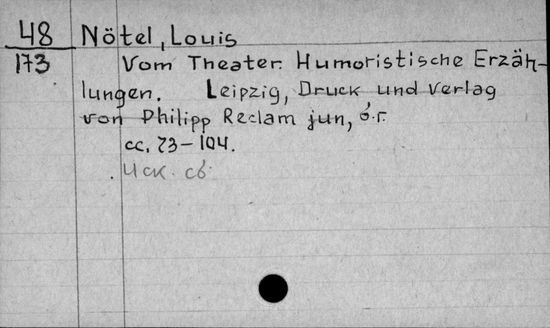 48 Nötel, Louis
173 Vom Theater. Humoristische Erzäh-
lungen. Leipzig, Druck und Verlag
von Philipp Reclam jun, б.г.
сс. 73-104.
Иск. сб.